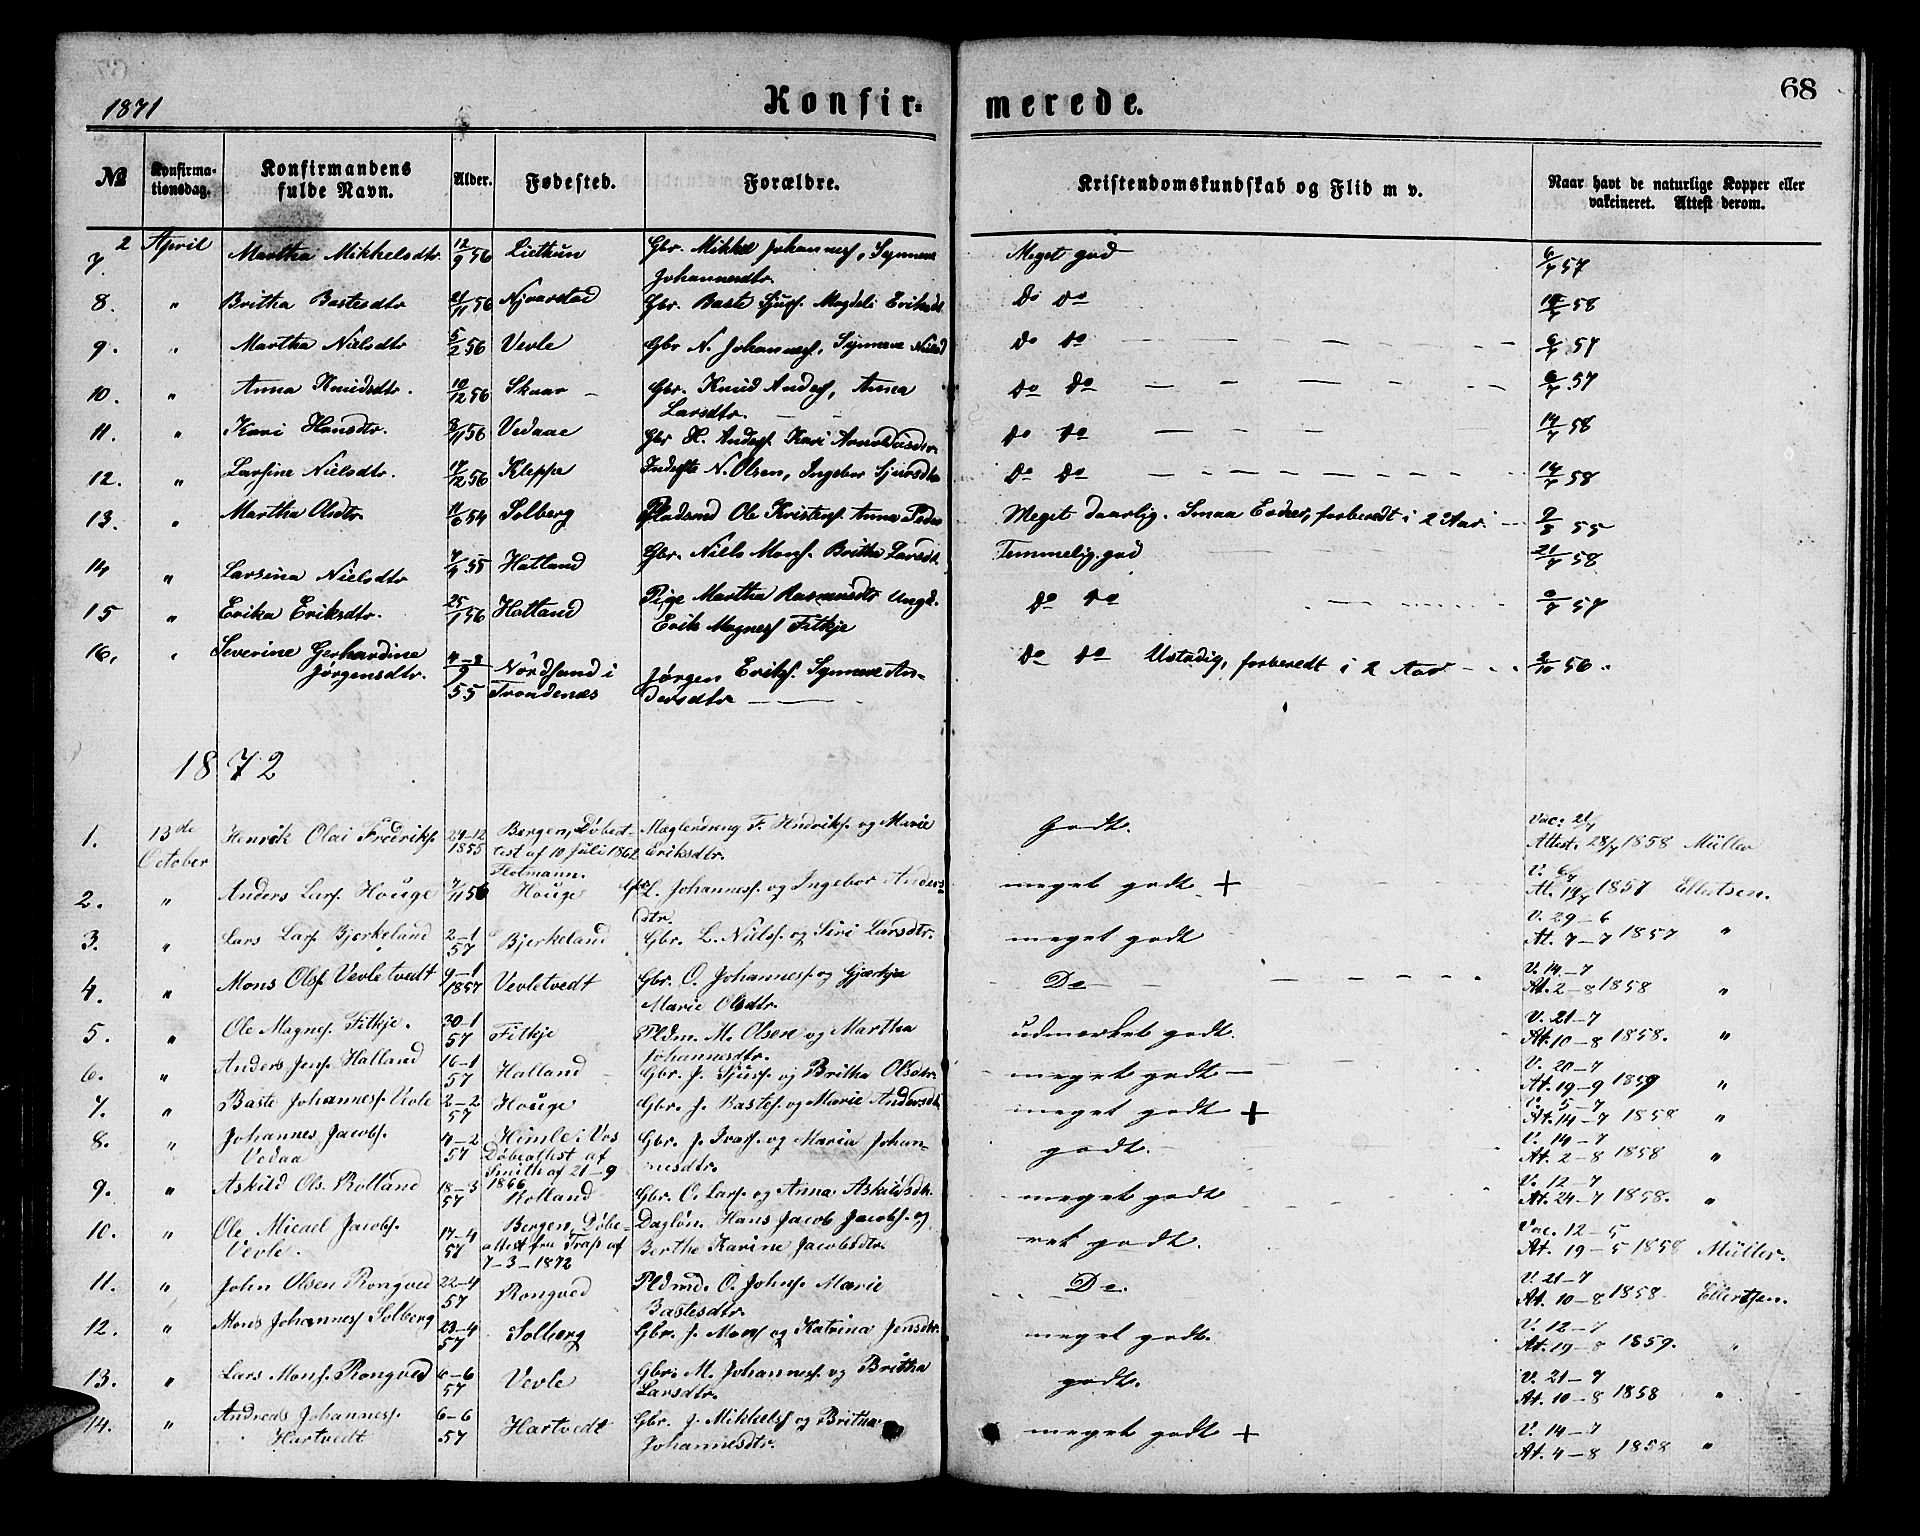 68
1871 Konfir- merede.
№ Konfirma- tionsdag. Konfirmandens fulde Navn. Alder. Fødested. Forældre. Kristendomskundskab og Flid m v. Naar havt de naturlige Kopper eller vakcineret. Attest derom.
7. 2 April Martha Mikkelsdtr. 12/9 56 Liethun Gbr. Mikkel Johannesf, Synneve Meget god 6/7 57
Johannesdtr
8. " Britha Bastesdtr 21/11 56 Njaarstad Gbr. Baste Sjurf. Magdeli Eriksdt. do do 58
9. " Martha Nielsdtr 5/2 56 Vevle Gbr N. Johannesf, Synneve Nielsd do do 6/7 57
10. " Anna Knudsdtr. 10/12 56 Skaar Gbr. Knud Andesf, Anna do do 6/7 57
Larsdtr.
11. " Kari Hansdtr. 3/11 56 Vedaae Gbr H. Andesf. Kari Arnoldusdtr. do do 14/7 58
12. " Larsine Nielsdtr. 17/12 56 Kleppe Inderste N. Olsen, Ingebor Sjursdtr do do 14/7 58
13. " Martha Olsdtr. 11/6 54 Solberg Pladsmd Ole Kristenf. Anna Peders Meget daarlig. Smaa Evner, forberedt i 2 Aar. 55
14 " Larsina Nielsdtr 7/4 55 Hatland Gbr. Niels Monsf. Britha Larsdt. Temmelig god 21/7 58
15 " Erika Eriksdtr. 25/1 56 Hatland Pige Martha Rasmusdtr Ungk. do do 57
Erik Magnesf Fitkje
16. " Severine Gerhardine
Jørgensdtr. 9/55 Nordsand i Trondenæs Jørgen Eriksf. Synneve An-
dersdtr do do Ustadig, forberedt i 2 Aar 3/10 56.
1872
1. 13de October Henrik Olai Fredriksf. 24-12 1855 Bergen, Døbeat- Mæglerdreng F. Hendriksf. og Marie Godt. Vac: 21/7
test af 10 Juli 1862 Eriksdtr. Attest. 28/7 1858 Müller
Flotmann.
2. " Anders Larsf. Houge 7/11 56 Houge Gbr L. Johannesf. og Ingebor Anders- meget godt + V. 6/7
dtr. At. 19/7 1857 Ellertsen.
3. " Lars Larsf Bjerkeland 2-1 57 Bjerkeland Gbr. L. Nielsf. og Siri Larsdtr. meget godt V. 29-6
At. 7-7 1857 "
4. " Mons Olsf. Vevletvedt 9-1 1857 Vevletvedt Gbr. O. Johannesf. og Gjertje Do V. 14-7
Marie Olsdtr. At. 2-8 1858 "
5. " Ole Magnesf. Fitkje. 30-1 57 Fitkje Pldm. M. Olsen og Martha udmerket godt. V. 21-7
Johannesdtr. At. 10-8 1858. "
6. " Anders Jensf. Halland 16-1 57 Halland Gbr. J. Sjursf. og Britha Olsdtr. meget godt V. 20-7
At. 19-9 1859 "
7. " Baste Johannesf. Vevle 2-2 57 Houge Gbr. J. Bastesf. og Marie Andersdt. meget godt + V. 5-7
At. 14-7 1858 "
8. " Johannes Jacobsf. 4-2 57 Himle i Vos Gbr. J. Ivarsf. og Maria Johan- godt. V. 14-7
Vedaa Døbeattest af nesdtr. At. 2-8 1858 "
Smith af 21-9
1866
9. " Askild Ols. Rolland 18-3 57 Rolland Gbr. O. Larsf. og Anna Askildsdtr. meget godt V. 12-7
At. 24-7 1858. "
10. " Ole Micael Jacobsf. 17-4 57 Bergen, Døbe- Dagløn. Hans Jacob Jacobsf. og ret godt. Vac. 12-5
Vevle. attest fra Trap af Berthe Karine Jacobsdtr. At. 19-5 1858 Müller.
7-3-1872
11. " John Olsen Rongved 22-4 57 Rongved Pldmd. O. Johnsf. Marie Do. V. 21-7
Bastesdtr. At. 10-8 1858. Ellertsen.
12. " Mons Johannesf Solberg 23-4 57 Solberg Gbr. J. Monsf og Katrina Jensdtr. meget godt. V. 12-7
At. 19-8 1859. "
13. " Lars Monsf. Rongved 6-6 57 Vevle Gbr. M. Johannesf. og Britha godt. V. 21-7
Larsdtr. At. 10-8 1858 "
14. " Andreas Johannesf. 6-6 57 Hartvedt Gbr. J. Mikkelsf og Britha meget godt + V. 14-7
Hartvedt Johannesdtr. At. 4-8 1858 "